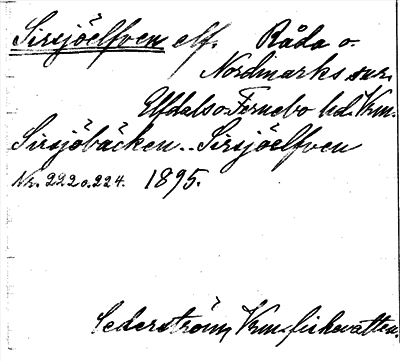 Sirsjöelfven elf. Råda o.
Nordmarks snr.
Elfdals o. Fernebo hd. Vrm.
Sirsjöbäcken.. Sirsjöelfven
Nr. 222 o. 224. 1895.
Cederström, Vrm. fiskevatten.